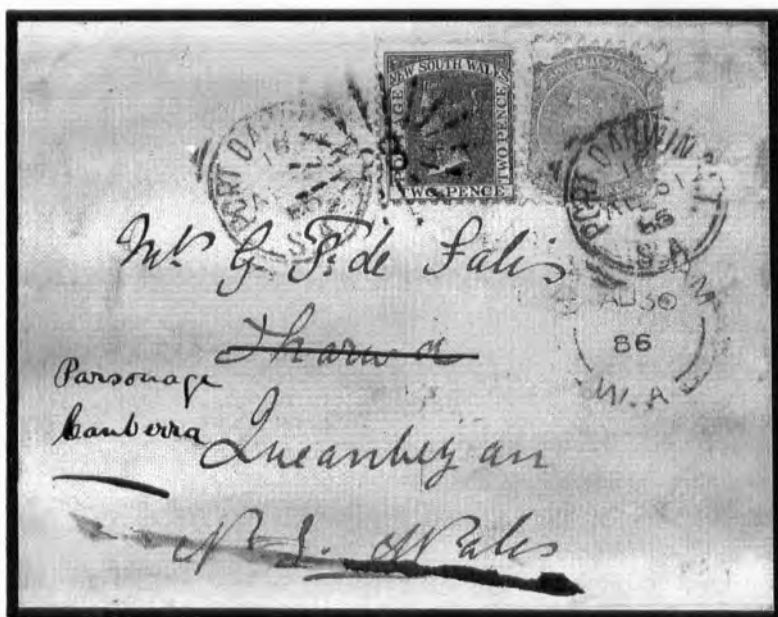 NEW SOUTH WALES
POSTAGE
TWO PENCE
TWO PENCE
PORT DARWIN
S.A
PORT DARWIN N.T.
86
S.A
AU 30
86
W.A
Mrs G F. de Salis
Tharwa
Parsonage
Canberra
Queanbeyan
N. S. Wales